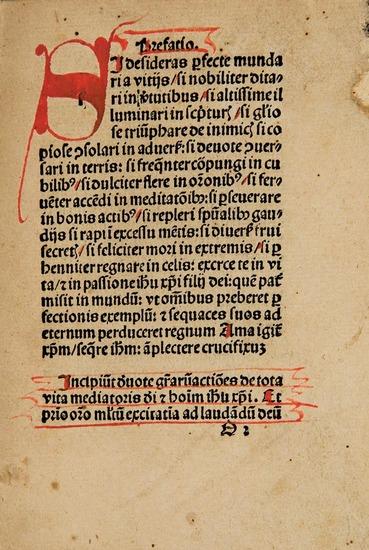 Prefatio.
SI desideras ꝑfecte munda
ri a vitijs/si nobiliter dita-
ri in ꝟtutibus/si altissime il
luminari in scͥpturꝭ/si glꝛio
se triũphare de inimicꝭ si co
piose ꝯsolari in aduerẜ: si deuote ꝯuer-
sari in terris: si freq̃nter cõpungi in cu
bilibꝰ/si dulciter flere in or̃onibꝰ/si fer-
uẽter accẽdi in meditatõibꝰ: si ꝑseuerare
in bonis actibꝰ/si repleri spũalibꝰ gau-
dijs si rapi ĩ excessu mẽtis: si diuerẜ frui
secretꝭ/si feliciter mori in extremis/si ꝑ
henniter regnare in celis: exerce te in vi
ta/⁊ in passione ihũ xp̃i filij dei: quẽ pat̃
misit in mundũ: vt om̃ibus preberet ꝑ
fectionis exemplũ: ⁊ sequaces suos ad
eternum perduceret regnum Ama igit̃
xp̃m/seq̃re ih̃m: ãplectere crucifixuꝫ
Incipiũt deuote gr̃aruactiões de tota
vita mediatoris di ⁊ hoĩm ihũ xp̃i. Et
pꝛio or̃o ml̃tũ excitatia ad laudãdũ deũ